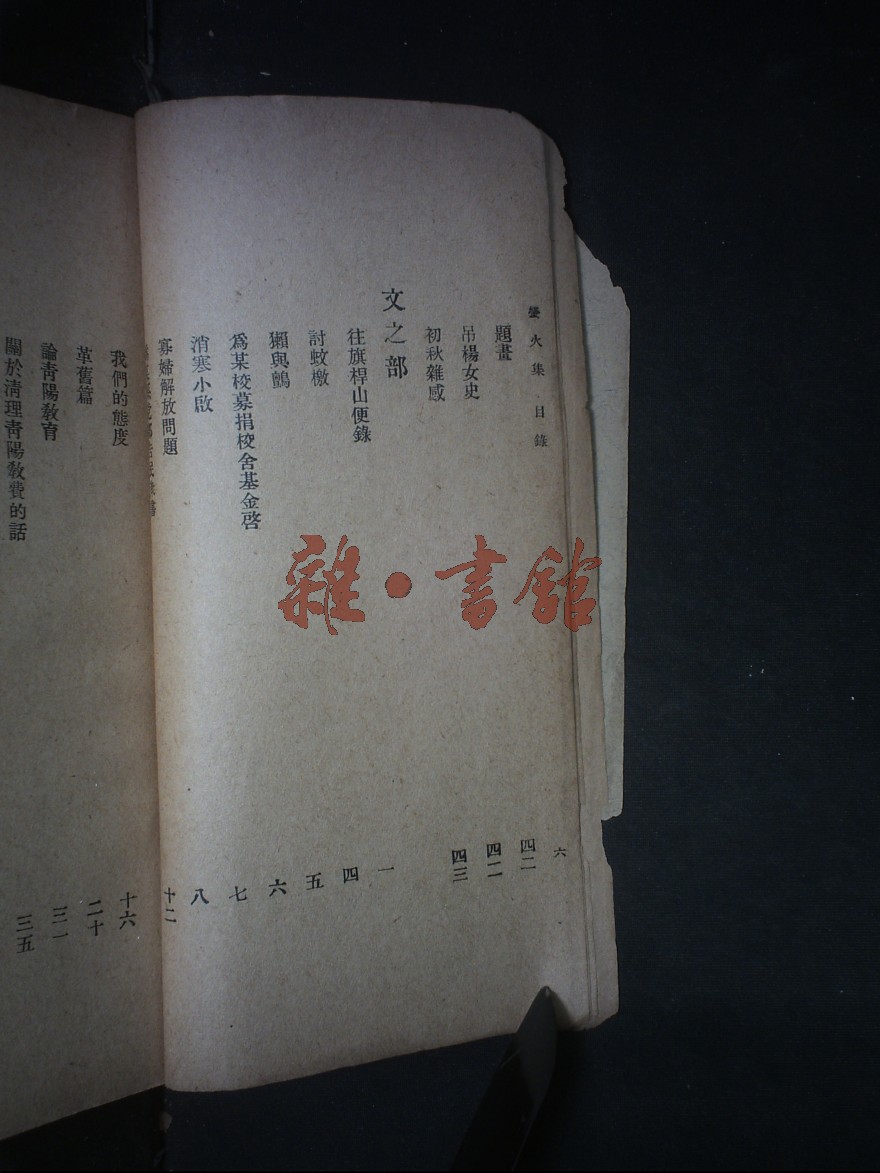 螢火集 目錄 六
題畫 四二
吊楊女史 四二
初秋雜感 四三
文之部
往旗桿山便錄 一
討蚊檄 四
獺與鸇 五
爲某校募捐校舍基金啓 六
消寒小啟 七
寡婦解放問題 八
十二
我們的態度 十六
革舊篇 二十
論靑陽敎育 三一
關於淸理靑陽敎費的話 三五
雜·書館